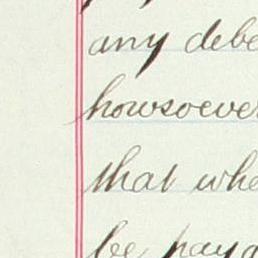 any debe
howsoever
that whe
be paya